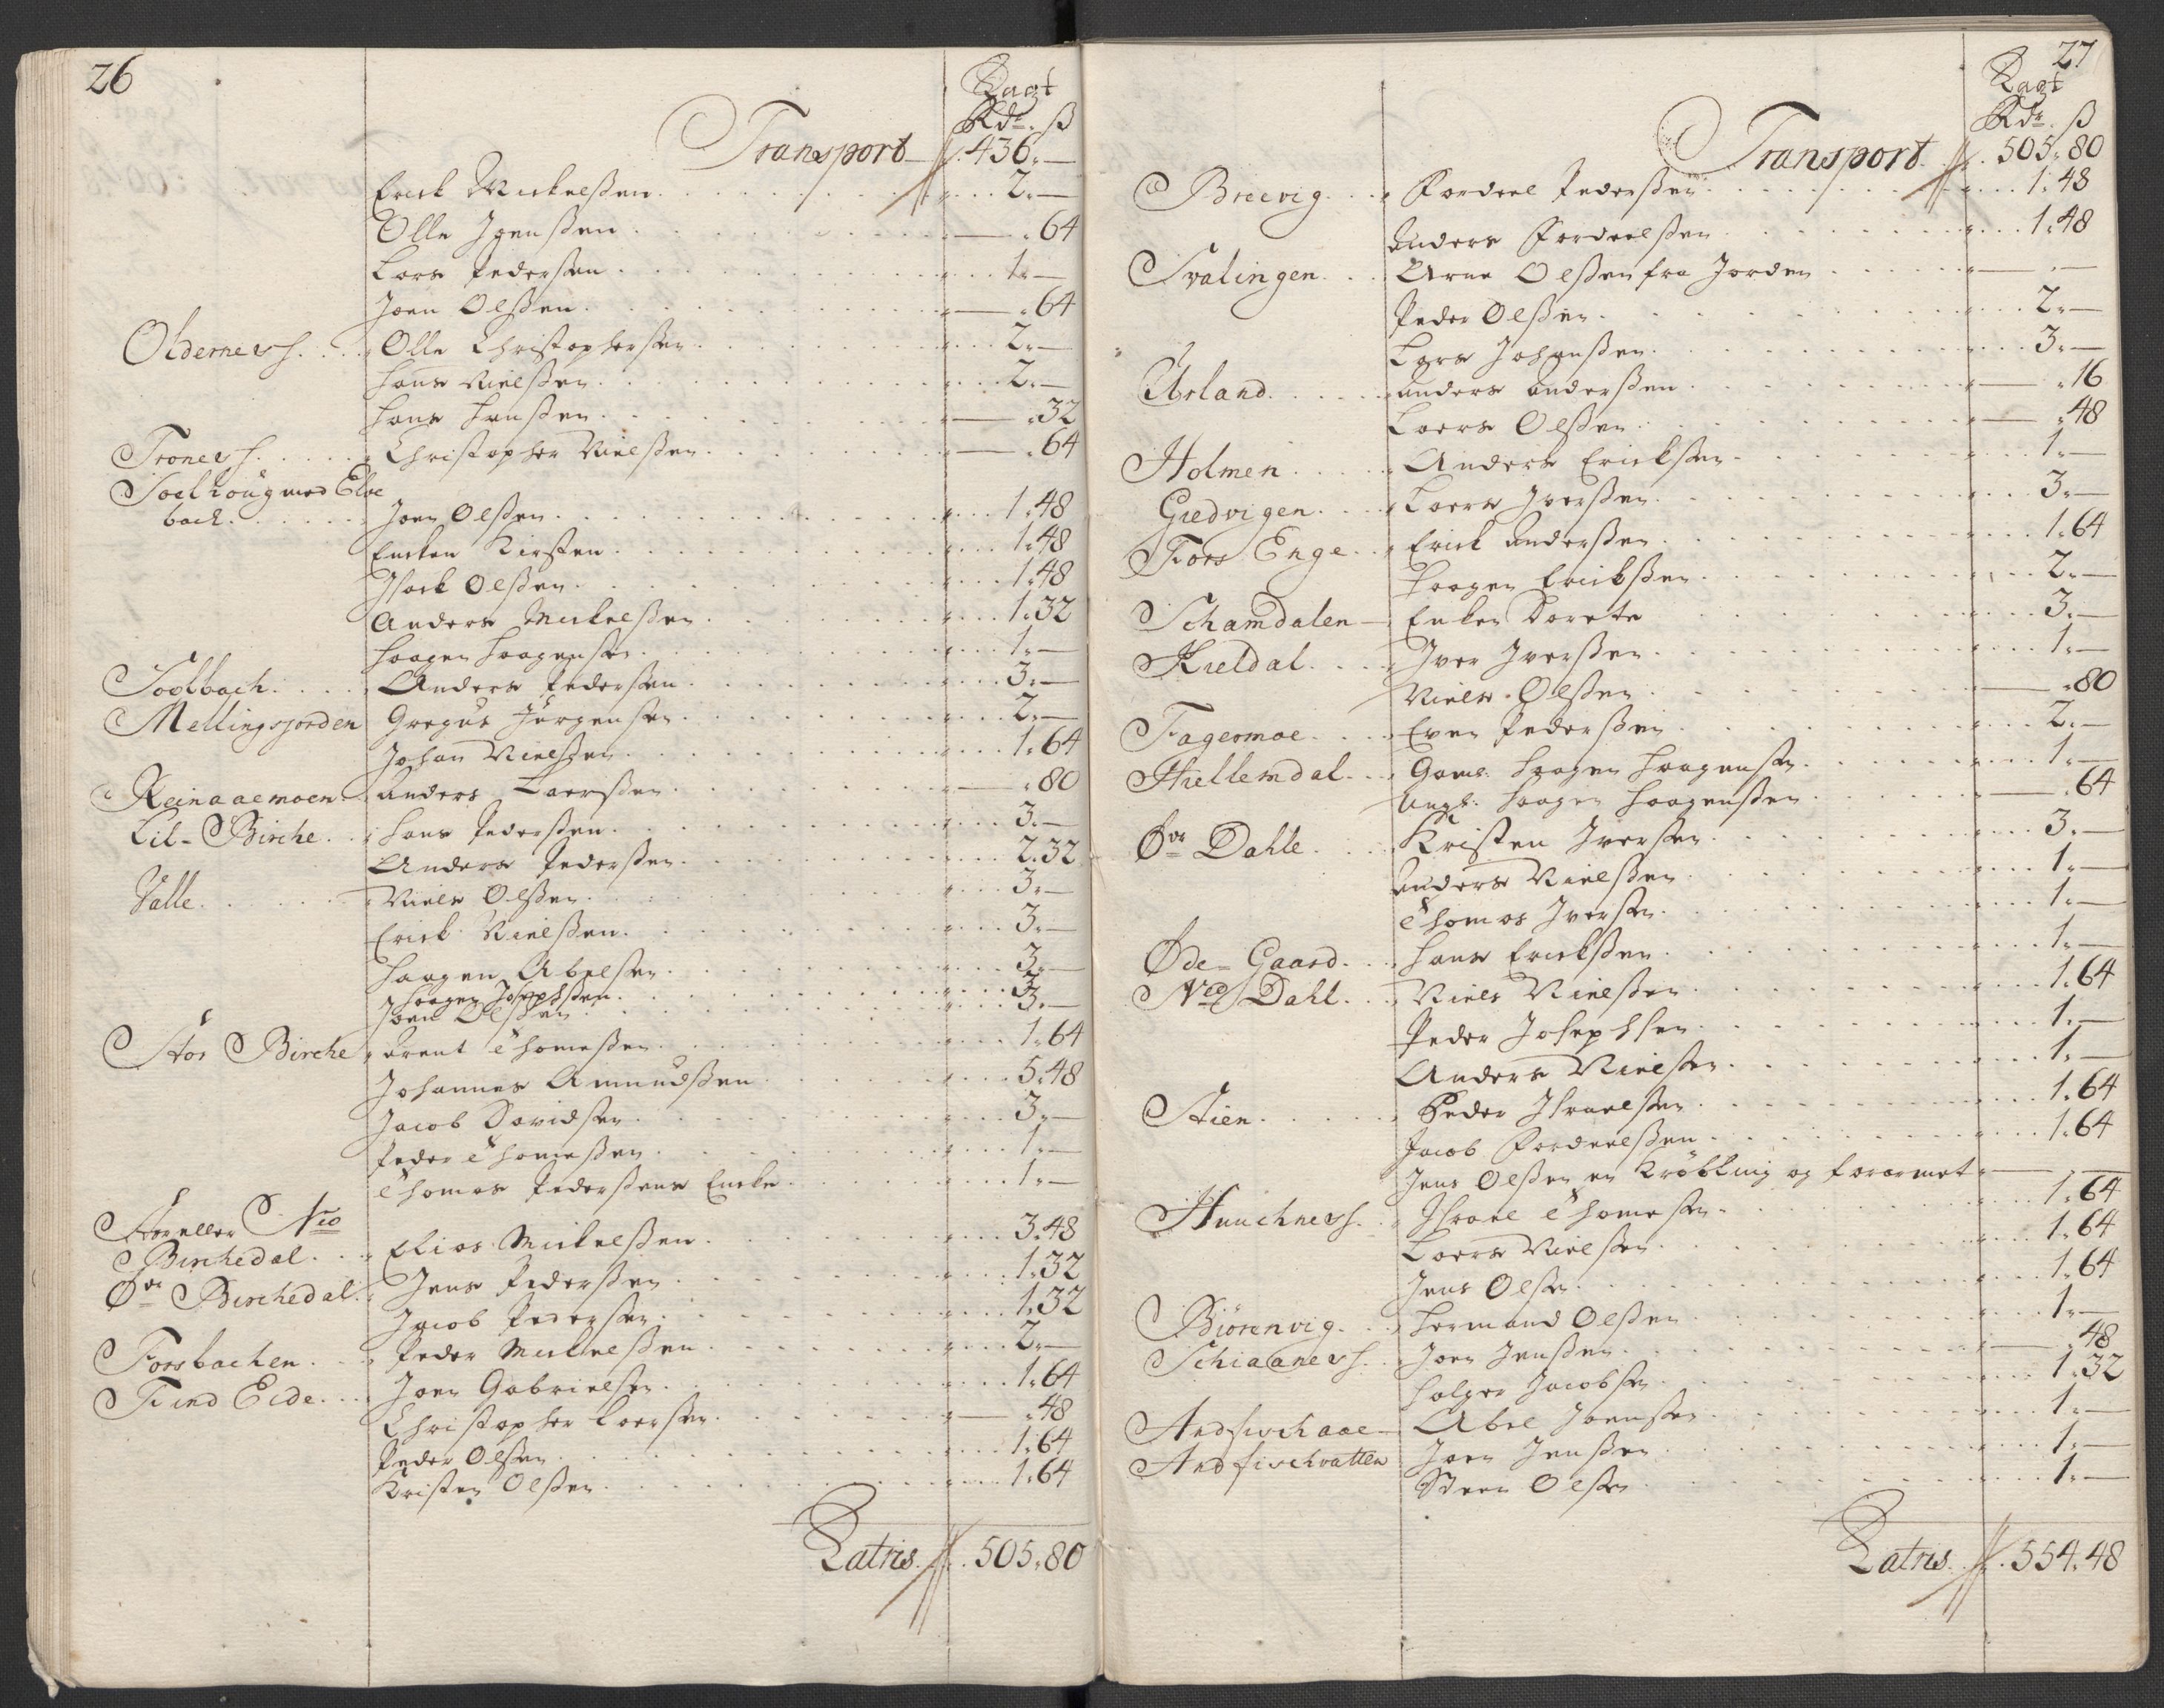 26
Ragt
Rdr. ß
Transport 436.—
Erick Mickelßen 2.—
Olle Jgenßen —.64
Lars Pederßen 1.—
Joen Olßen —.64
Oldernes Olle Christophersen 2.—
Hans Nielßen 2.—
Hans Hanßen —.32
Trones Christopher Nielßen —.64
Soelhoug med Elve
bach Joen Olßen 1.48
Encken Kirsten 1.48
Jsack Olßen 1.48
Anders Mickelßen 1.32
Haagen Haagensen 1.—
Soelbach Anders Pederßen 3.—
Mellingsjorden Gregus Jørgensen 2.—
Johan Nielßen 1.64
Reinaaemoen Anders Laersßen —.80
Lil-Birche Hans Pederßen 3.—
Anders Pederßen 2.32
Valle Niels Olßen 3.—
Erick Nielßen 3.—
Haagen Abelsen 3.—
Haagen Josephßen 3
Joen Olßen 3.—
Stor Birche Arent Thomeßen 1.64
Johannes Amundßen 5.48
Jacob Davidsen 3.—
Peder Thomeßen 1.—
Thomas Pederßens Encke 1.—
Stor eller Neo
Birchedal Elias Mickelßen 3.48
Ovr Birchedal Jens Pederßen 1.32
Jacob Pedersen 1.32
Forsbachen Peder Mickelßen 2.—
Find Eide Joen Gabrielsen 1.64
Christopher Laersen —.48
Peder Olßen 1.64
Kristen Olßen 1.64
Latris 505.80
27
Ragt
Rdr. ß
Transport 505.80
Breevig Fordeel Pederßen 1.48
Anders Fordeelßen 1.48
Svalingen Arne Olßen fra Jorden —.—
Peder Olßen 2.—
Lars Johanßen 3.—
Urland Anders Anderßen —.16
Laers Olßen —.48
Holmen Anders Ericksen 1.—
Giedvigen Laers Jverßen 3.—
Fors Enge Erick Anderßen 1.64
Haagen Erickßen 2.—
Schamdalen Enken Dorete 3.—
Kieldal Jver Jverßen 1.—
Niels Olßen —.80
Fagermoe Even Pederßen 2.—
Hiellemdal Gaml: Haagen Haagensen 1.—
Ungf: Haagen Haagenßen —.64
Ovr Dahle Kristen Jversen 3.—
Anders Nielßen 1.—
Thomas Jversen 1.—
Øde-Gaard Hans Erickßen 1.—
Ned Dahl Niels Nielßen 1.64
Peder Josephsen 1.—
Anders Nielsen 1.—
Stien Peder Jsraelsen 1.64
Jacob Fordeelßen 1.64
Jens Olßen en Krøbling og forarmet —.—
Hunchnes Jsrael Thomesen 1.64
Laers Nielsen 1.64
Jens Olsen 1.64
Biørenvig Hermand Olßen 1.—
Schiaanes Joen Jenßen —.48
Holger Jacobsen 1.32
Andfischaae Abel Joensen 1.—
Andfischvatten Joen Jenßen 1.—
Steen Olsen 1.—
Latris 554.48